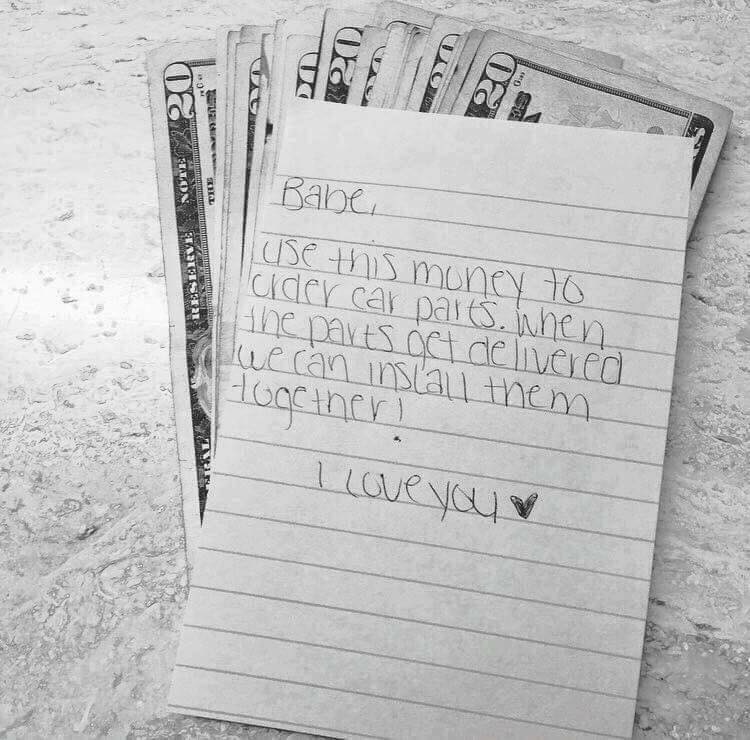 20 20 20 20 20 20
RESERVE NOTE
THE
Babe,
use this money to
order car parts. When
the parts get delivered
we can install them
together!
I love you ♥